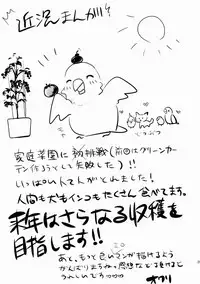 近況まんが!!
どうぶつ
家庭菜園に初挑戦(前回はグリーンカー
テン作ろうとして失敗した)!!
いっぱいトマトがとれました!
人間も犬もインコもたくさん食べてます。
来年はさらなる収穫を
目指します!!
あと、もっと色いマンガ描けるよう
がんばりますね。感想など頂けると
うれしいです
オブリ